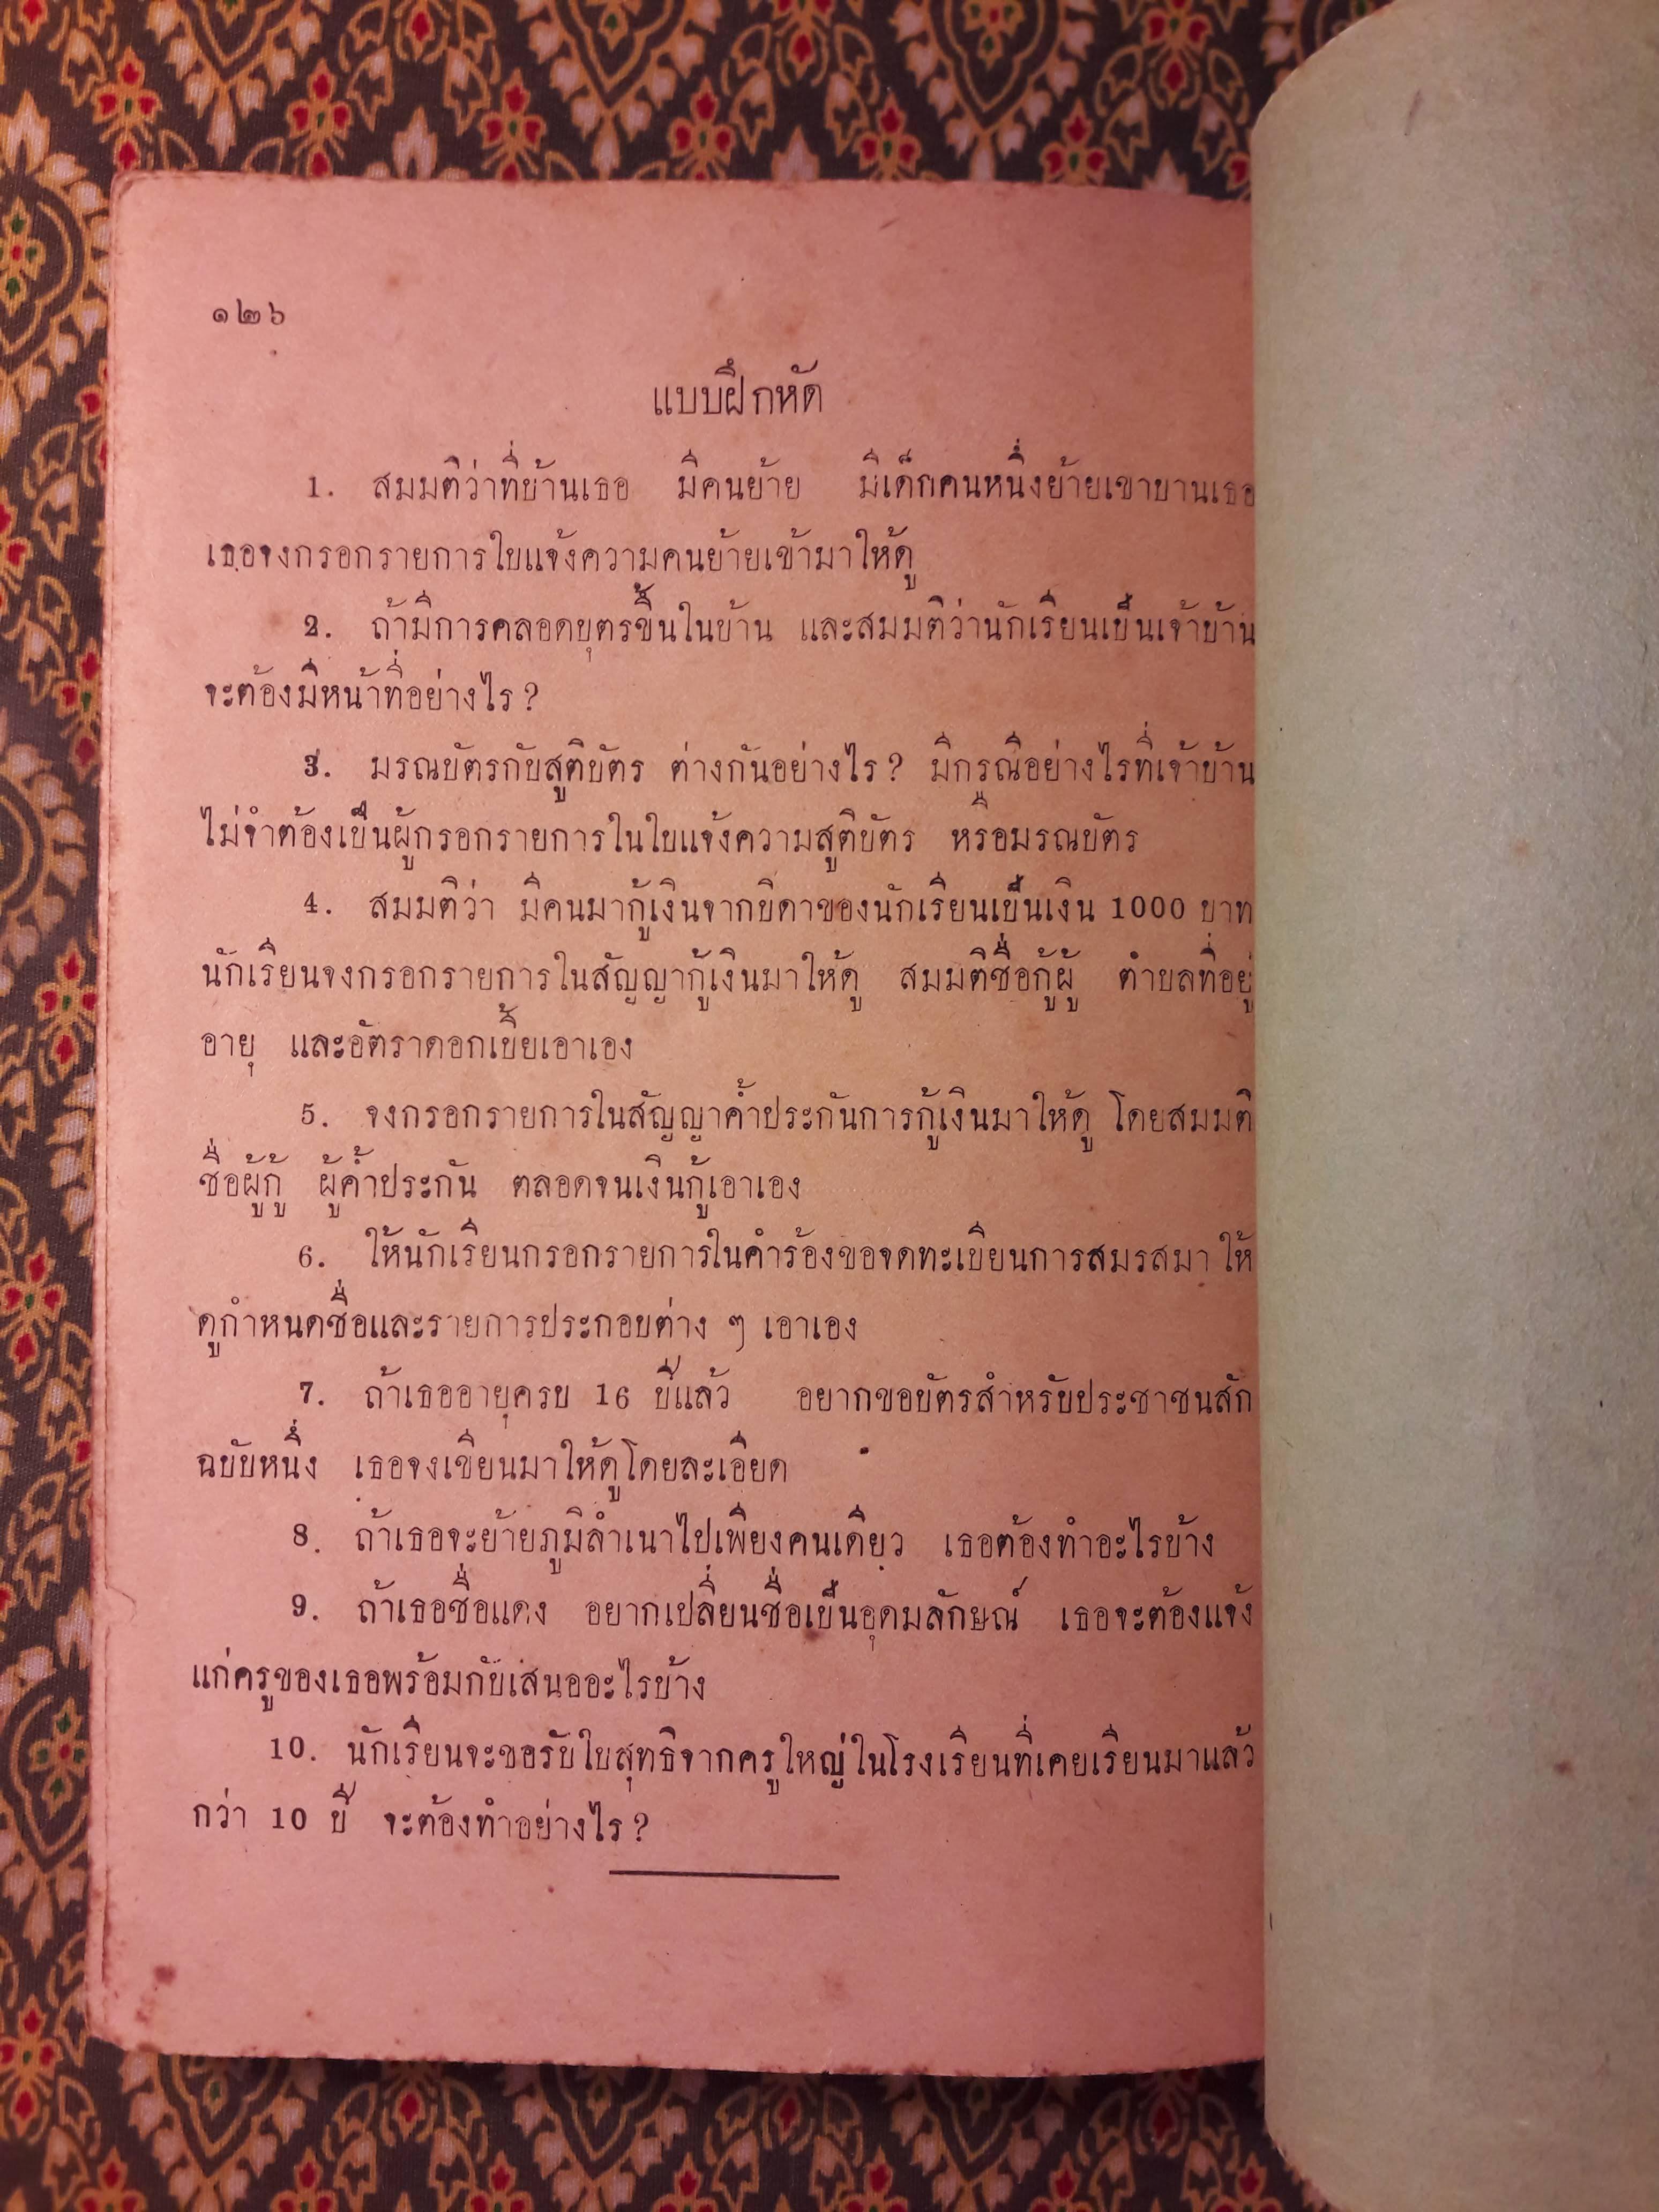 ๑๒๖
แบบฝึกหัด
1. สมมติว่าที่บ้านเธอ มีคนย้าย มีเด็กคนหนึ่งย้ายเขาบานเธอ
เธอจงกรอกรายการใบแจ้งความคนย้ายเข้ามาให้ดู
2. ถ้ามีการคลอดบุตรขึ้นในบ้าน และสมมติว่านักเรียนเป็นเจ้าบ้าน
จะต้องมีหน้าที่อย่างไร?
3. มรณบัตรกับสูติบัตร ต่างกันอย่างไร? มีกรณีอย่างไรที่เจ้าบ้าน
ไม่จำต้องเป็นผู้กรอกรายการในใบแจ้งความสูติบัตร หรือมรณบัตร
4. สมมติว่า มีคนมากู้เงินจากบิดาของนักเรียนเป็นเงิน 1000 บาท
นักเรียนจงกรอกรายการในสัญญากู้เงินมาให้ดู สมมติชื่อกู้ผู้ ตำบลที่อยู่
อายุ และอัตราดอกเบี้ยเอาเอง
5. จงกรอกรายการในสัญญาค้ำประกันการกู้เงินมาให้ดู โดยสมมติ
ชื่อผู้กู้ ผู้ค้ำประกัน ตลอดจนเงินกู้เอาเอง
6. ให้นักเรียนกรอกรายการในคำร้องขอจดทะเบียนการสมรสมา ให้
ดูกำหนดชื่อและรายการประกอบต่าง ๆ เอาเอง
7. ถ้าเธออายุครบ 16 ปีแล้ว อยากขอบัตรสำหรับประชาชนสัก
ฉบับหนึ่ง เธอจงเขียนมาให้ดูโดยละเอียด
8. ถ้าเธอจะย้ายภูมิลำเนาไปเพียงคนเดียว เธอต้องทำอะไรบ้าง
9. ถ้าเธอชื่อแดง อยากเปลี่ยนชื่อเป็นอุดมลักษณ์ เธอจะต้องแจ้ง
แก่ครูของเธอพร้อมกับเสนออะไรบ้าง
10. นักเรียนจะขอรับใบสุทธิจากครูใหญ่ในโรงเรียนที่เคยเรียนมาแล้ว
กว่า 10 ปี จะต้องทำอย่างไร?